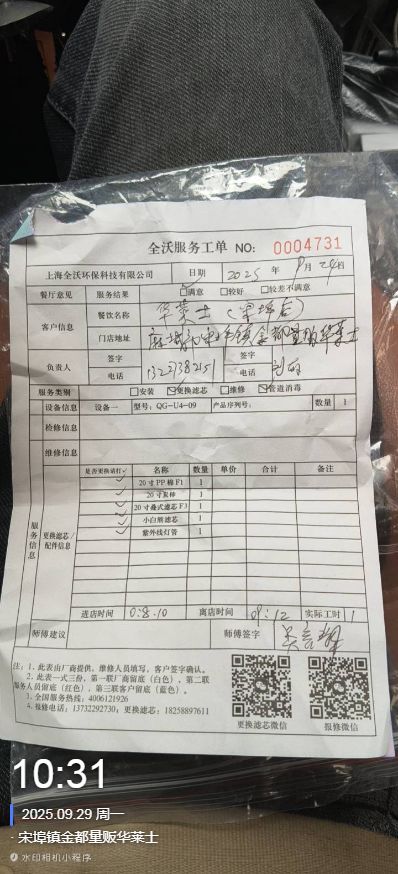 全沃服务工单 NO: 0004731
上海全沃环保科技有限公司 日期 2025 年 月 日
餐厅意见 服务结果 满意 较好 较差不满意
客户信息 餐饮名称 华莱士(宋埠店)
门店地址 麻城市宋埠镇金都量贩华莱士
负责人 签字 签字
电话 电话
服务类别 安装 更换滤芯 维修 管道消毒
设备信息 设备一 型号: QG-U4-09 产品序列号: 数量 1
检修信息
维修信息
服务信息
更换滤芯/配件信息
是否更换请打✓ 名称 数量 单价 合计 备注
✓ 20寸PP棉F1 1
✓ 20寸炭棒 1
✓ 20寸叠式滤芯F3 1
✓ 小白纳滤芯 1
✓ 紫外线灯管 1
进店时间 08:10 离店时间 09:12 实际工时 1
师傅建议 师傅签字
注: 1. 此表由厂商提供, 维修人员填写, 客户签字确认。
2. 此表一式三份, 第一联厂商留底 (白色), 第二联
服务人员留底 (红色), 第三联客户留底 (蓝色)。
3. 全国服务热线: 4006121926
4. 报修电话: 13732292730; 更换滤芯: 18258897611
更换滤芯微信 报修微信
10:31
2025.09.29 周一
· 宋埠镇金都量贩华莱士
水印相机小程序